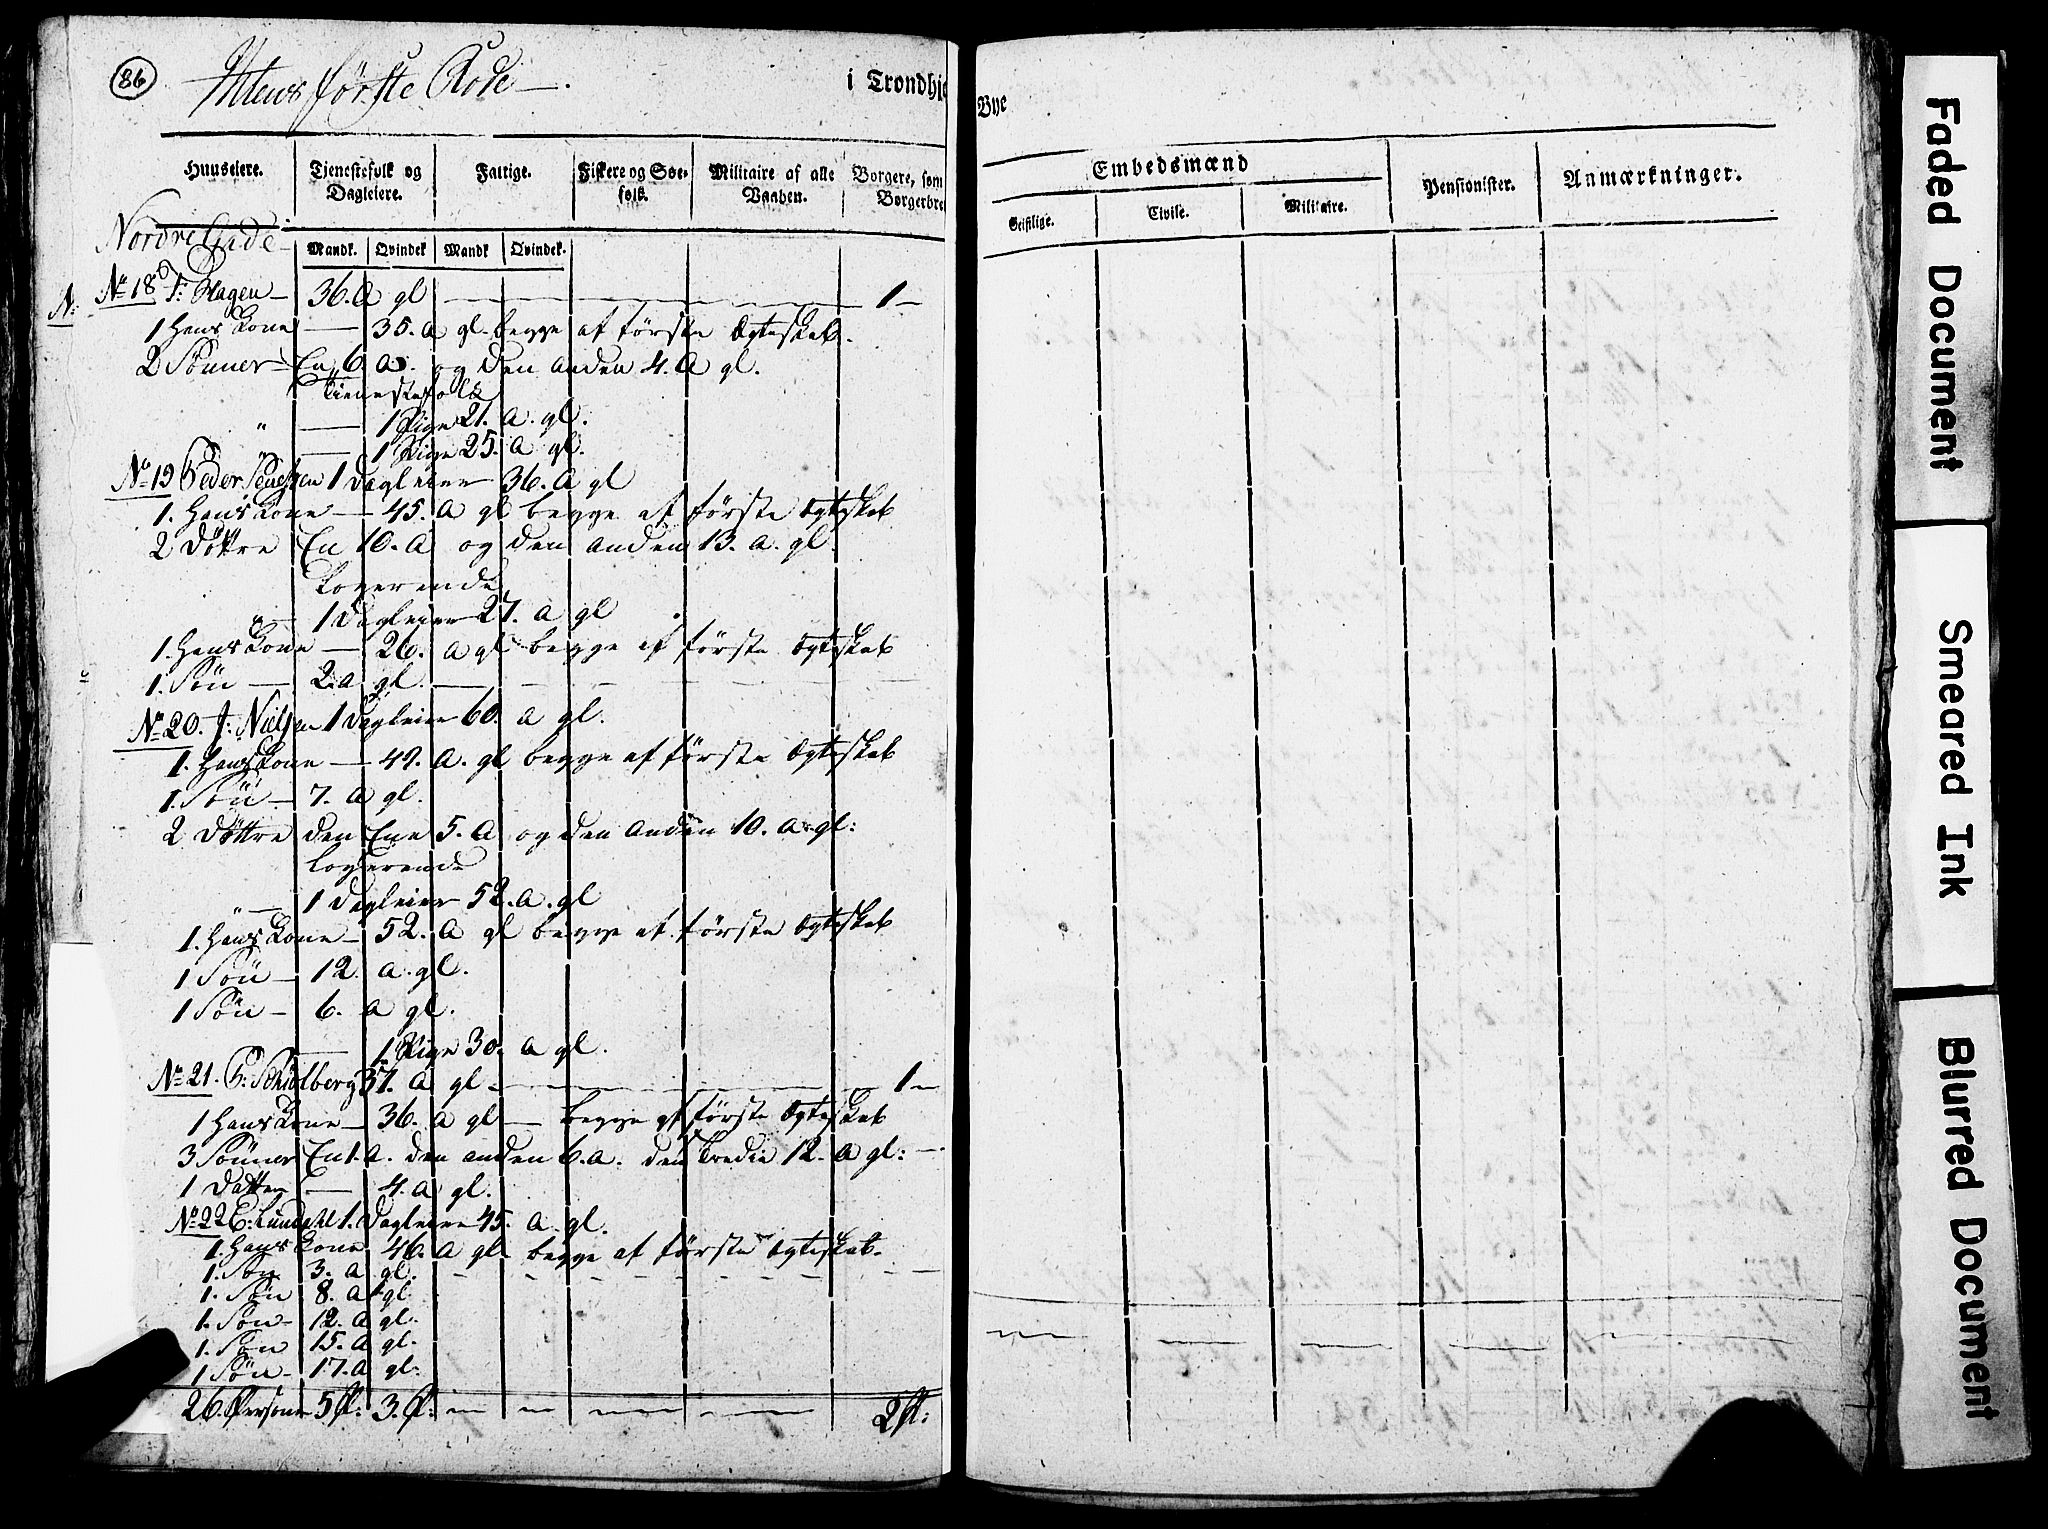 86
Ihlens første Rode
i Trondhje
Bye
Huuseiere.
Tjenestefolk og Dagleiere.
Fattige.
Fiskere og Søe-folk.
Militaire af alle Vaaben.
Borgere, som
Borgerbre
Embedsmænd
Geistlige.
Civile.
Militaire.
Pensionister.
Anmærkninger.
Mandk. Qvindek Mandk Qvindek.
Nordre Gade
No 18 Hagen — 36. A gl — 1 —
1 Hans Kone — 35. A gl. begge af første Ægteskab.
2 Sønner — En 6. A. og den anden 4. A gl.
Tienestefolk
" — 1 Pige 21. A. gl.
" — 1 Pige 25. A gl.
No 19 Peder 1 Dagleier 36. A gl
1. Hans Kone — 45. A gl begge af første Ægteskab
2 Døttre En 10. A og den anden 13. A. gl.
Logerende
" — 1 Dagleier 27. A gl
1. Hans Kone — 26. A gl begge af første Ægteskab
1. Søn — 2. A gl. —
No 20. J: Nielsen 1 Dagleier 60. A gl.
1. Hans Kone — 42. A. gl begge af første Ægteskab
1. Søn — 7. A gl.
2 Døttre den Ene 5. A og den anden 10. A gl:
Logerende
" — 1 Dagleier 52. A. gl
1. Hans Kone — 52. A gl begge af første Ægteskab
1 Søn — 12. A. gl.
1 Søn — 6. A gl.
— 1 Pige 30. A gl.
No 21. 37. A gl — 1 —
1 Hans Kone — 36. A gl — begge af første Ægteskab
3 Sønner En 1. A. den anden 6. A. den tredie 12. A gl: —
1 Datter — 4. A gl.
No 22 Lundahl 1. Dagleier 45. A. gl.
1. Hans Kone 46. A gl. begge af første Ægteskab.
1. Søn 3. A gl.
1. Søn 8. A gl.
1. Søn — 12. A gl.
1. Søn 15. A gl.
1 Søn — 17. A gl:
26. Persone 5 3. 2
Faded Document
Smeared Ink
Blurred Document